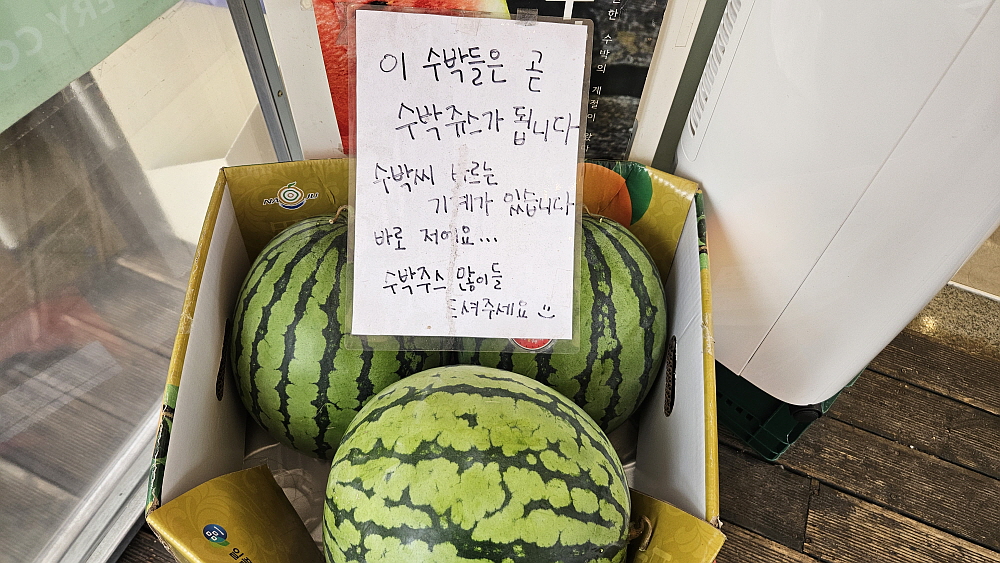 이 수박들은 곧
수박쥬스가 됩니다
수박씨 바르는
기계가 있습니다
바로 저에요...
수박주스 많이들
드셔주세요
수박의 계절이
NAJU